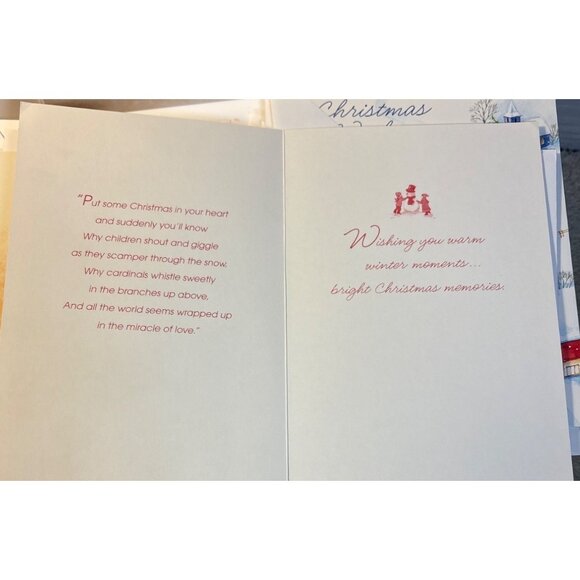 Christmas
"Put some Christmas in your heart
and suddenly you'll know
Why children shout and giggle
as they scamper through the snow,
Why cardinals whistle sweetly
in the branches up above,
And all the world seems wrapped up
in the miracle of love."
Wishing you warm
winter moments...
bright Christmas memories.